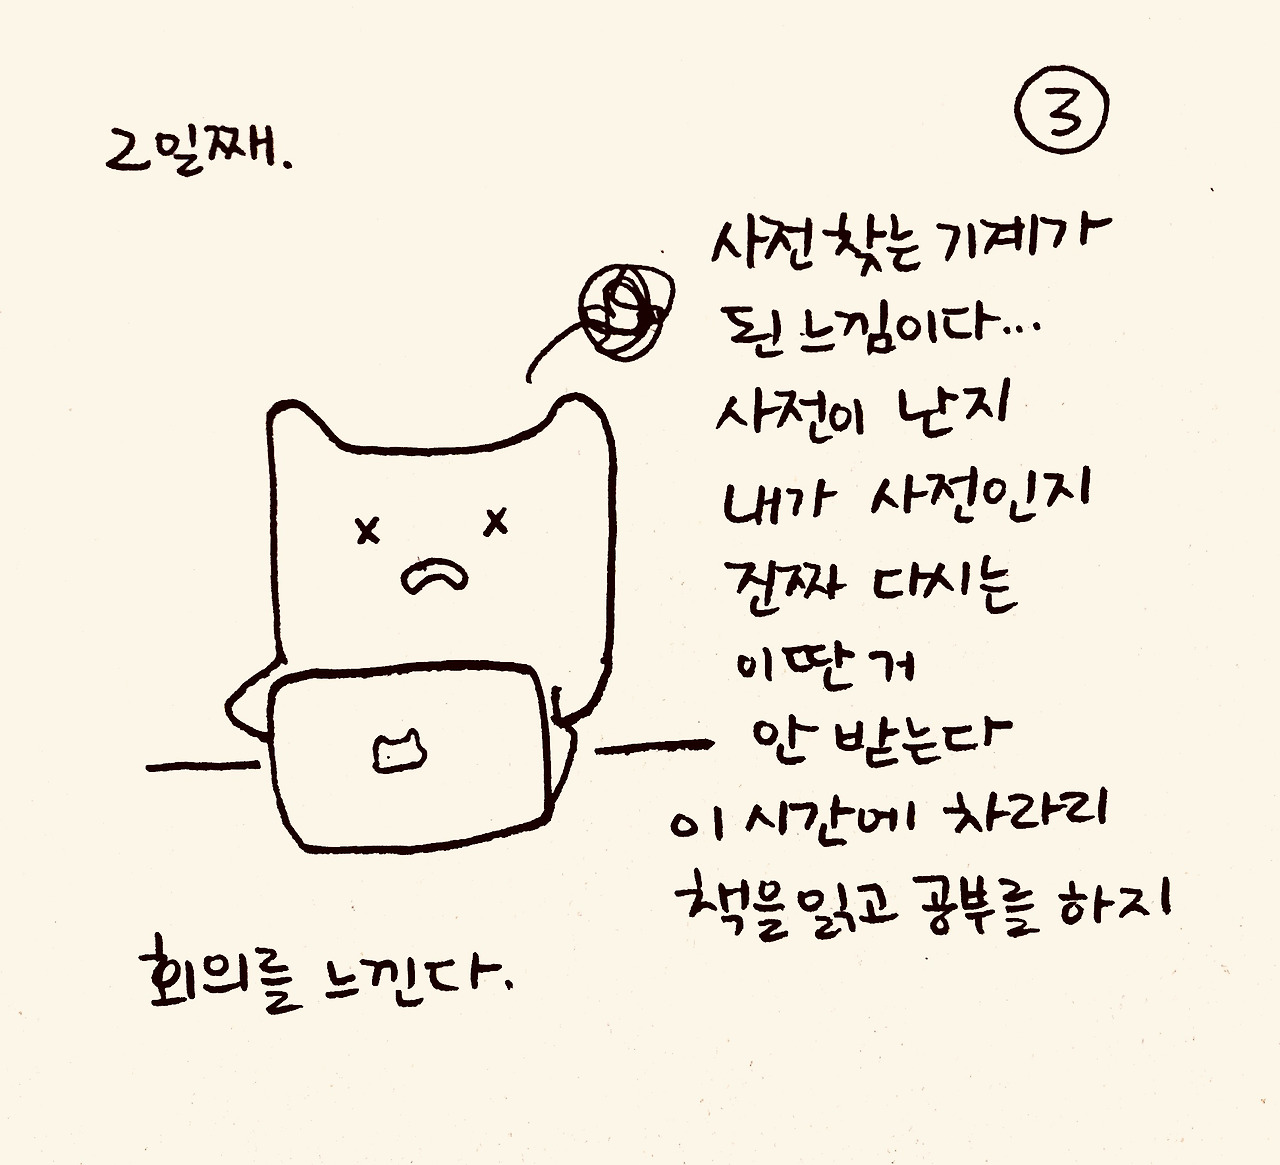 2일째.
③
사전 찾는 기계가
된 느낌이다...
사전이 난지
내가 사전인지
진짜 다시는
이딴 거
안 받는다
이 시간에 차라리
책을 읽고 공부를 하지
회의를 느낀다.